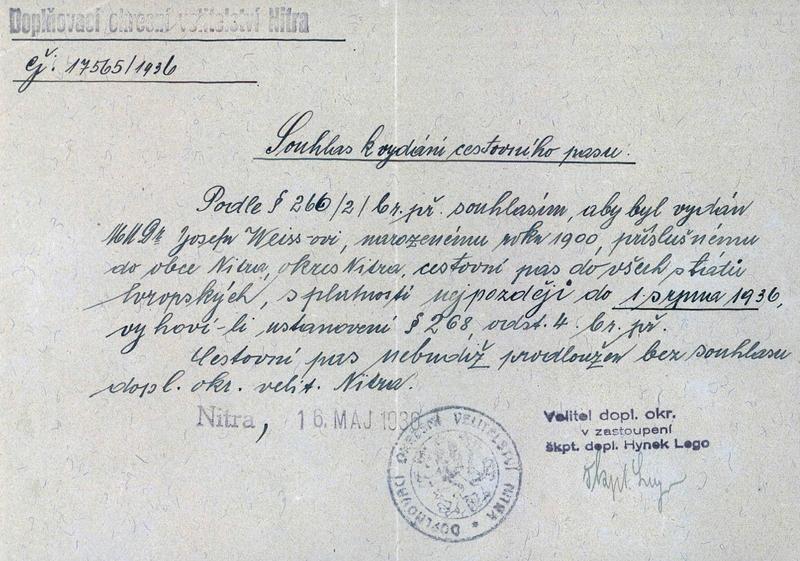 Doplňovací okresní velitelství Nitra
čj: 17565/1936
Souhlas k vydání cestovního pasu.
Podle § 266/2/ br. př. souhlasím, aby byl vydán
MUDr Josefu Weiss-ovi, narozenému roku 1900, příslušnému
do obce Nitra, okres Nitra, cestovní pas do všech států
Evropských, s platností nejpozději do 1 srpna 1936,
vyhoví-li ustanovení § 268, odst. 4. br. př.
Cestovní pas nebudiž prodloužen bez souhlasu
dopl. okr. velit. Nitra.
Nitra, 16. MAJ 1936
DOPLŇOVACÍ OKRESNÍ VELITELSTVÍ NITRA *
Velitel dopl. okr.
v zastoupení
škpt. depl. Hynek Lego
škpt Lego